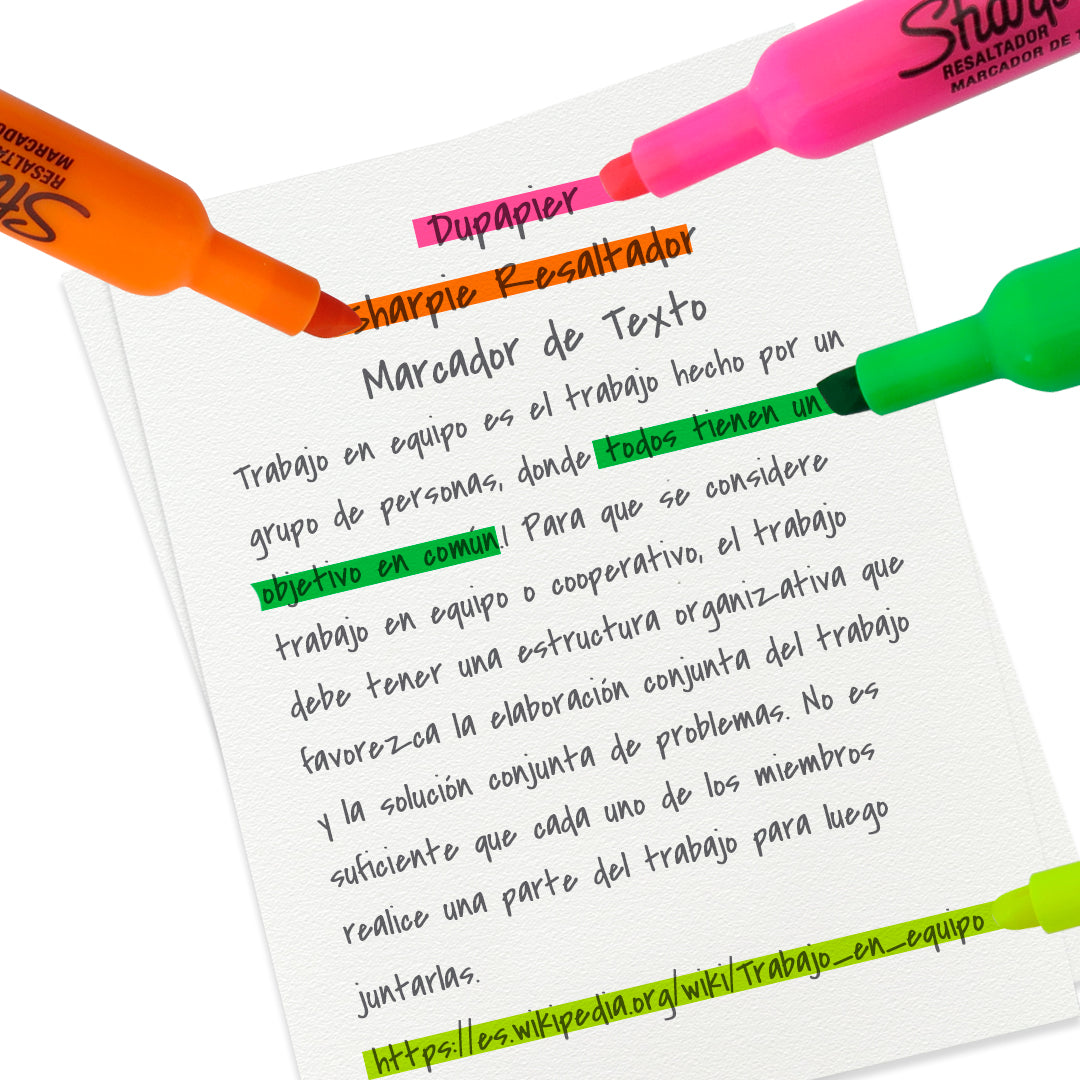 Sharpie
RESALTADOR
MARCADOR DE T
Sh
RESALTA
MARCADO
Dupapier
Sharpie Resaltador
Marcador de Texto
Trabajo en equipo es el trabajo hecho por un
grupo de personas, donde todos tienen un
objetivo en común.1 Para que se considere
trabajo en equipo o cooperativo, el trabajo
debe tener una estructura organizativa que
favorezca la elaboración conjunta del trabajo
y la solución conjunta de problemas. No es
suficiente que cada uno de los miembros
realice una parte del trabajo para luego
juntarlas.
https://es.wikipedia.org/wiki/Trabajo_en_equipo